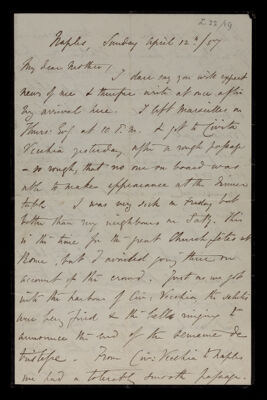 Z 33/19
Naples, Sunday April 12th/57
My dear Mother,
I dare say you will expect
news of me & therefore write at once after
my arrival here. I left Marseilles on
Thurs. Evg at 10 P.M. & got to Civita
Vecchia yesterday after a rough passage
– so rough, that no one on board was
able to make appearance at the dinner
table. I was very sick on Friday but
better than my neighbours on Saty. This
is the time for the great Church fêtes at
Rome, but I avoided going there on
account of the crowd. Just as we got
into the harbour of Civ: Vecchia the salutes
were being fired & the bells ringing to
announce the end of the semaine de
tristesse. From Civ: Vecchia to Naples
we had a tolerably smooth passage.